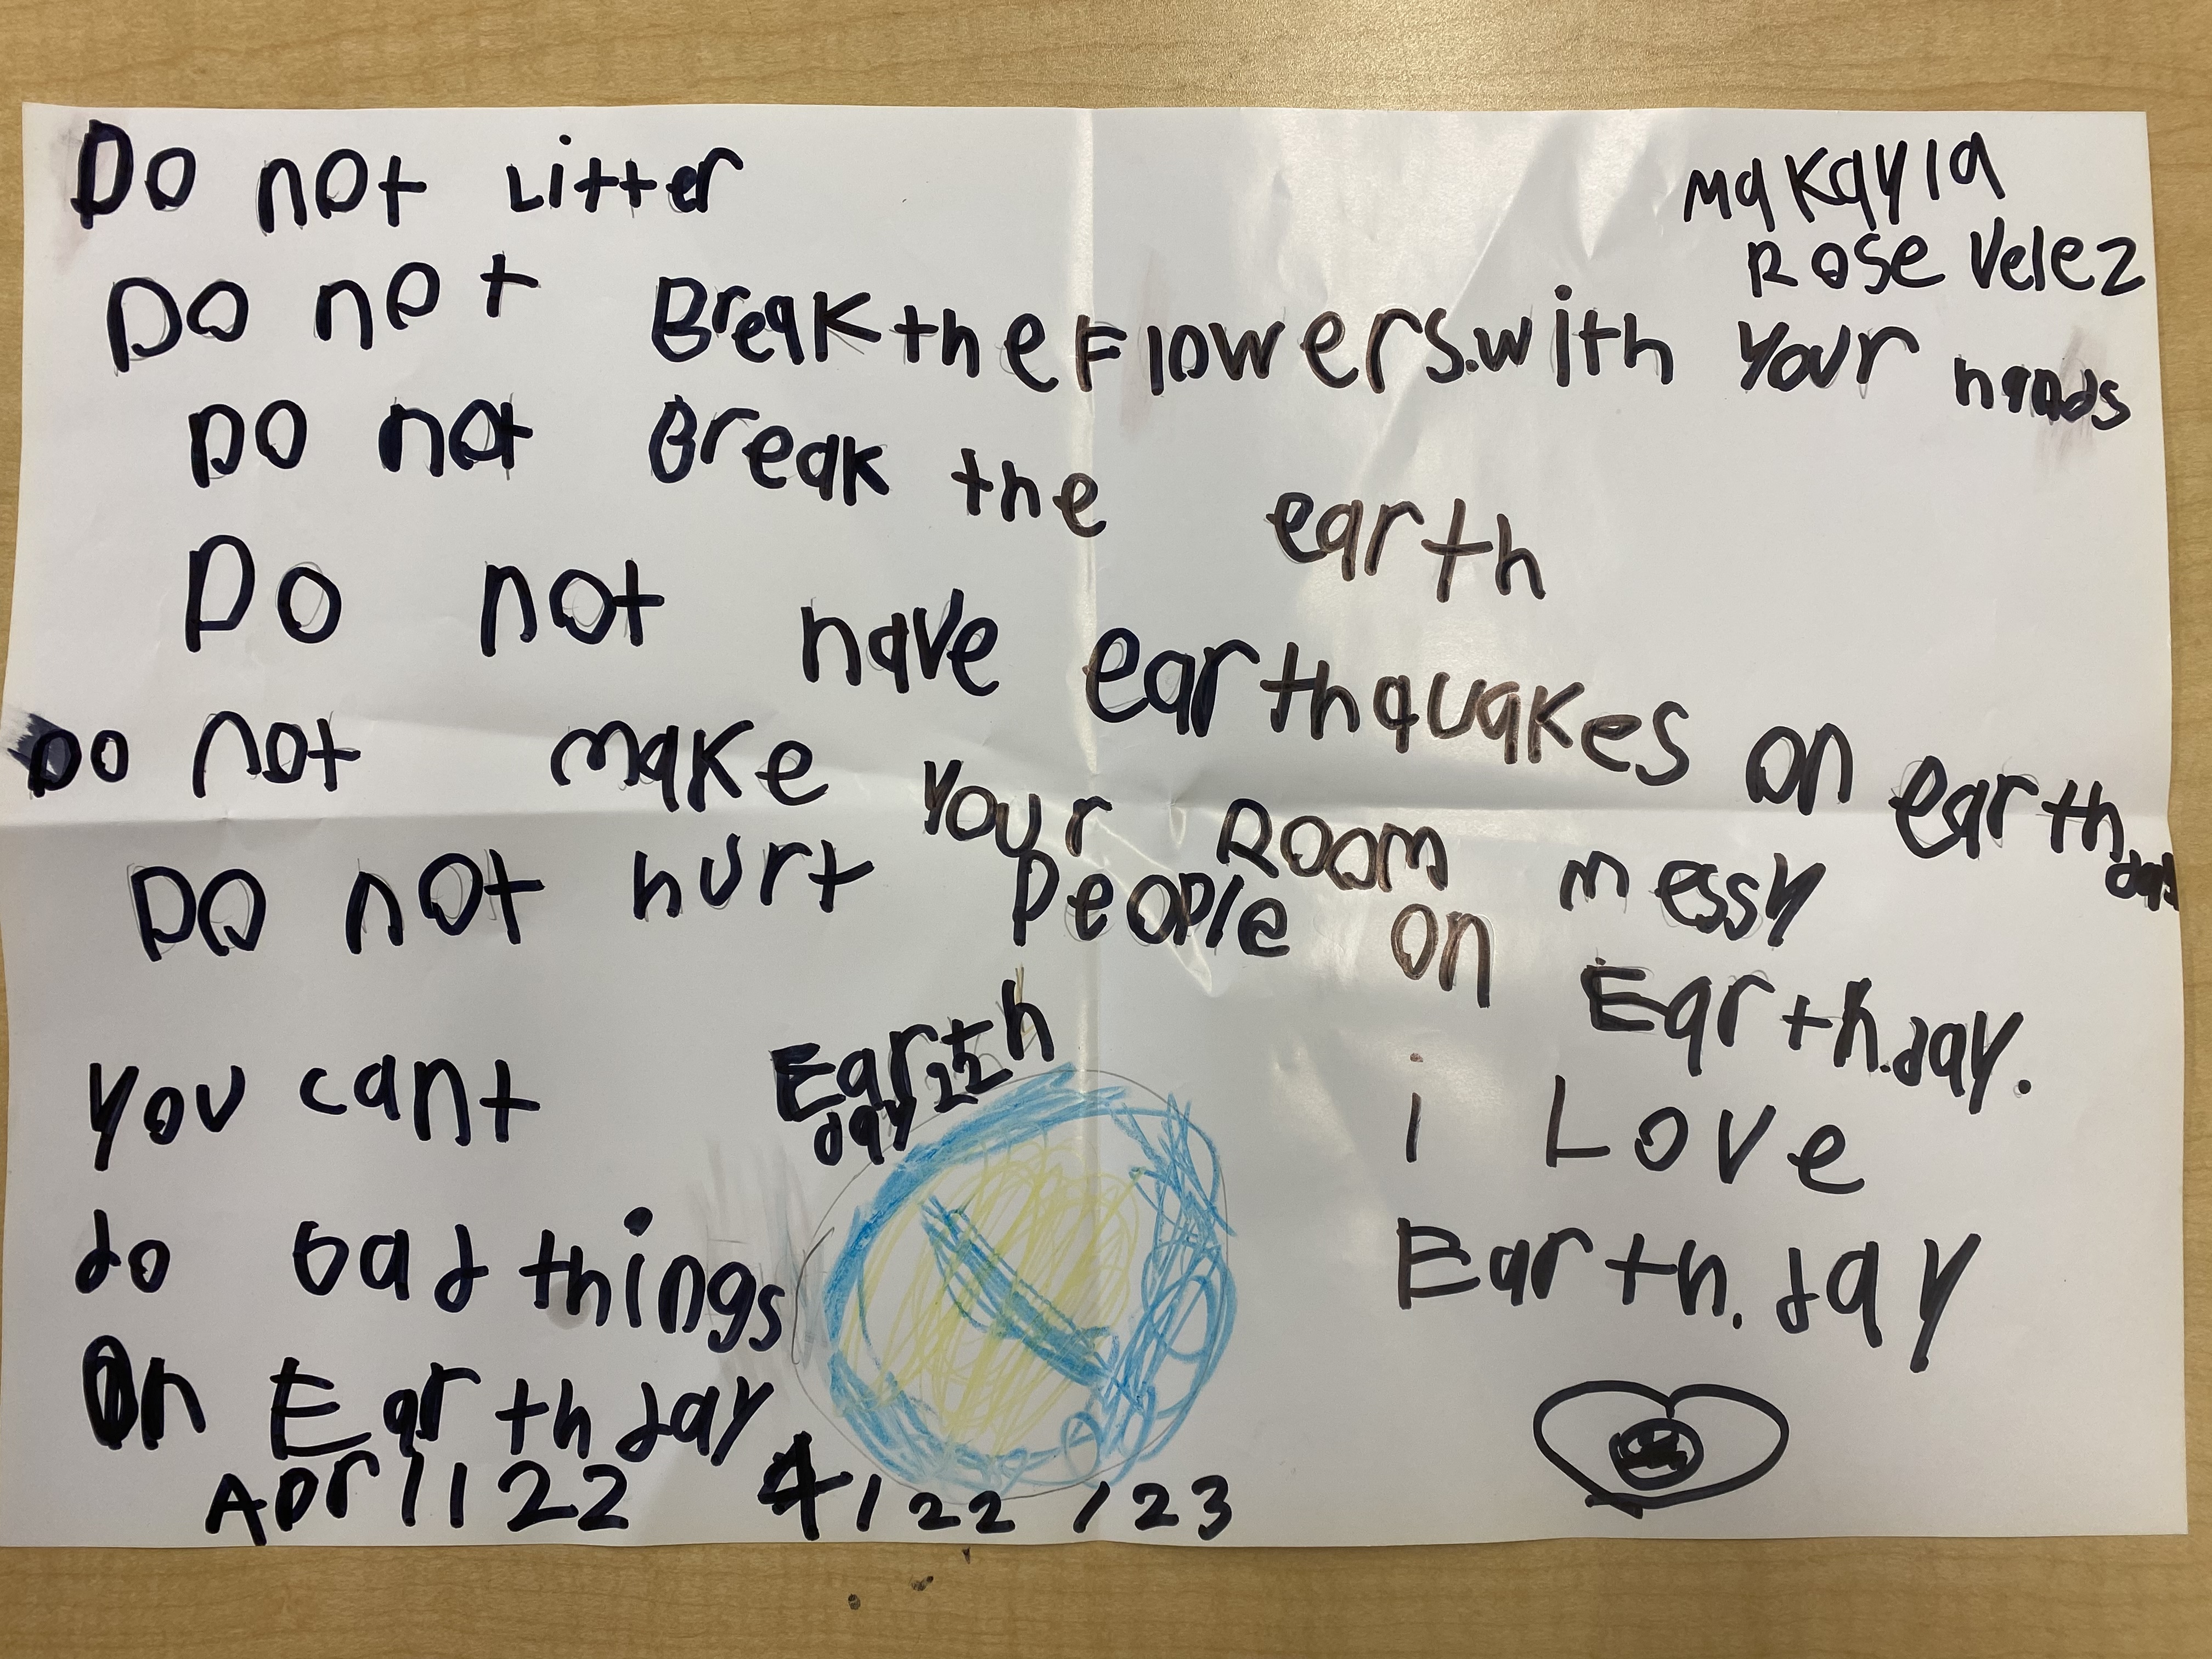 Do not Litter
Makayla
Rose Velez
Do not Break the Flowers.with your hands
Do not Break the earth
Do not have earthquakes on earth day
Do not make your Room messy
Do not hurt People on Earth.day.
Earth
day 22
you cant
do bad things
On Earth day
April 22 4/22/23
i Love
Earth.day